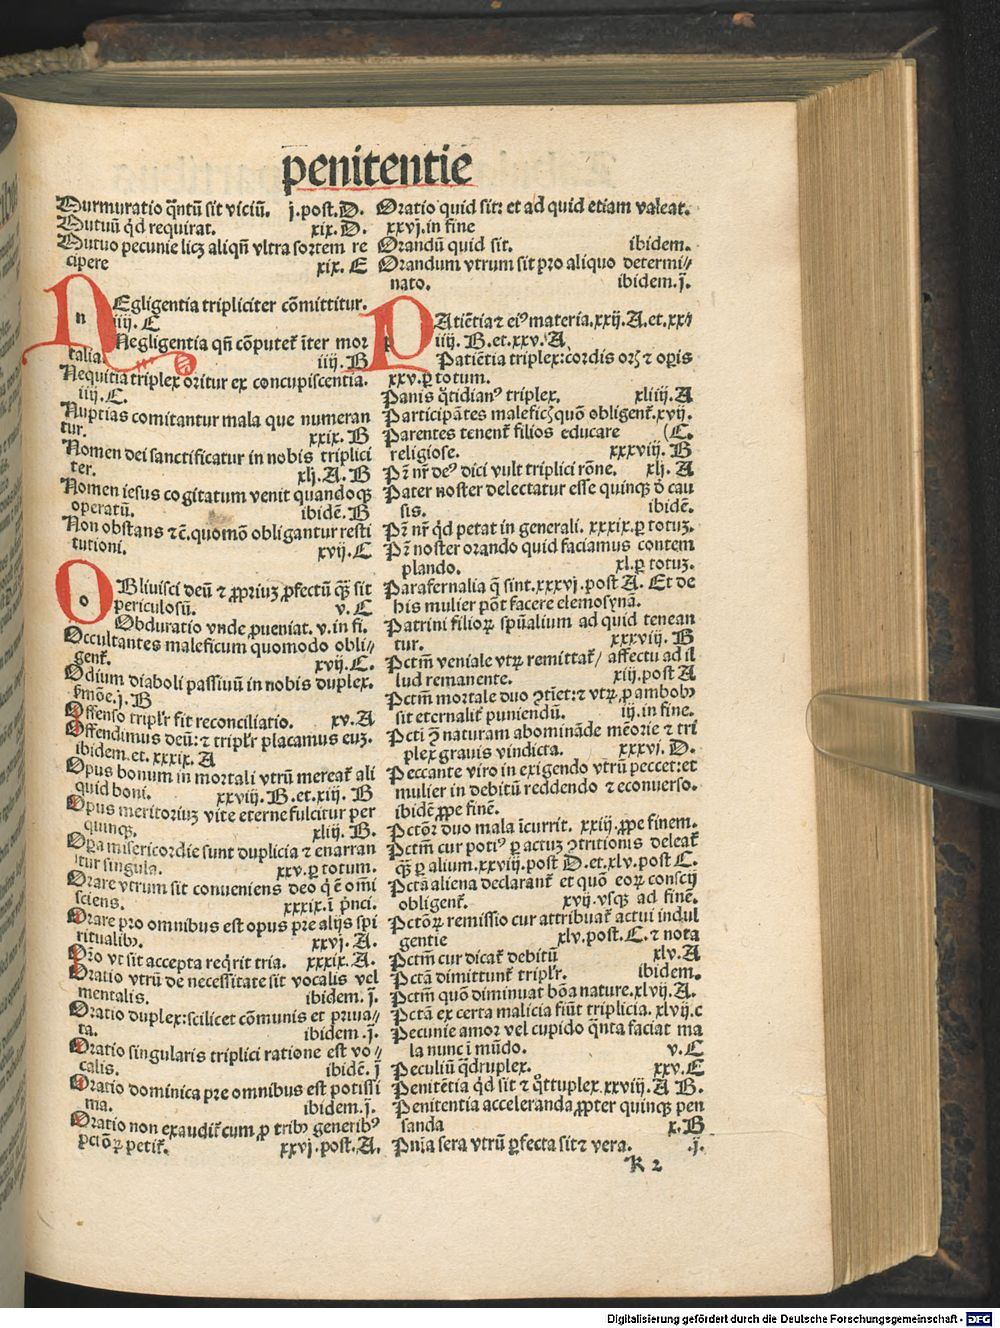 penitentie
Murmuratio qn̄tū sit viciū. j.post.D.
Mutuū q̄d requirat. xix. D.
Mutuo pecunie licꝫ aliqn̄ vltra sortem re
cipere xix. E
NEgligentia tripliciter cōmittitur.
iiij. C
Negligentia qn̄ cōputet̄ īter mor
talia. iiij. B
Nequitia triplex oritur ex concupiscentia.
iiij. C.
Nuptias comitantur mala que numeran
tur. xxix. B
Nomen dei sanctificatur in nobis triplici
ter. xlj. A. B
Nomen iesus cogitatum venit quandoqꝫ
operatū. ibidē. B
Non obstans ⁊c̄. quomō obligantur resti
tutioni. xvij. C
OBliuisci deū ⁊ ꝓpriuꝫ ꝓfectū qꝫ̄ sit
periculosū. v. C
Obduratio vnde ꝓueniat. v. in fi.
Occultantes maleficum quomodo obli⸗
gent̄. xvij. C.
Odium diaboli passiuū in nobis duplex.
ẜmōe. j. B
Offenso tripl̄r fit reconciliatio. xv. A
Offendimus deū: ⁊ tripl̄r placamus euꝫ.
ibidem. et. xxxix. A
Opus bonum in mortali vtrū mereat̄ ali
quid boni. xxviij. B. et. xiij. B
Opus meritoriuꝫ vite eterne fulcitur per
quinqꝫ. xliij. B.
Oꝑa misericordie sunt duplicia ⁊ enarran
tur singula. xxv. ꝑ totum.
Orare vtrum sit conueniens deo q̄ ē om̄i
sciens. xxxix. ī pn̄ci.
Orare pro omnibus est opus pre alijs spi
ritualibꝫ. xxvj. A.
Oro̅ vt sit accepta req̄rit tria. xxxix. A.
Oratio vtrū de necessitate sit vocalis vel
mentalis. ibidem. j.
Oratio duplex: scilicet cōmunis et priua⸗
ta. ibidem. j.
Oratio singularis triplici ratione est vo⸗
calis. ibidē. j
Oratio dominica pre omnibus est potissi
ma. ibidem. j.
Oratio non exaudit̄ cum ꝓ tribꝰ generibꝰ
pctōꝝ petit̄. xxvj. post. A.
Oratio quid sit: et ad quid etiam valeat.
xxvj. in fine
Orandū quid sit. ibidem.
Orandum vtrum sit pro aliquo determi⸗
nato. ibidem. j.
PAtiētia ⁊ eiꝰ materia. xxij. A. et. xxi
iiij. B. et. xxv. A
Patiētia triplex: cordis orꝫ ⁊ oꝑis
xxv. ꝑ totum.
Panis q̄tidianꝰ triplex. xliij. A
Participātes maleficꝫ quō obligent̄. xvij.
Parentes tenent̄ filios educare (C.
religiose. xxxviij. B
Pr̄ nr̄ deꝰ dici vult triplici rōne. xlj. A
Pater noster delectatur esse quinqꝫ d̄ cau
sis. ibidē.
Pr̄ nr̄ q̄d petat in generali. xxxix. ꝑ totuꝫ.
Pr̄ noster orando quid faciamus contem
plando. xl. ꝑ totuꝫ.
Parafernalia q̄ sint. xxxvj. post A. Et de
his mulier pōt facere elemosynā.
Patrini filioꝝ spūalium ad quid tenean
tur. xxxviij. B
Pctm̄ veniale vtꝝ remittat̄/ affectu ad il
lud remanente. xiij. post A
Pctm̄ mortale duo ꝯtinet: ⁊ vtꝝ ꝓ ambobꝰ
sit eternalit̄ puniendū. iij. in fine.
Pctī ꝯ̄ naturam abomināde mēorie ⁊ tri
plex grauis vindicta. xxxvj. D.
Peccante viro in exigendo vtrū peccet: et
mulier in debitū reddendo ⁊ econuerso.
ibidē ꝓpe finē.
Pctōr duo mala īcurrit. xxij. ꝓpe finem.
Pctm̄ cur potiꝰ ꝑ actuꝫ ꝯtritionis deleat̄
qꝫ̄ ꝑ alium. xxviij. post D. et. xlv. post C.
Pctā aliena declarant̄ et quō eoꝝ conscij
obligent̄. xvij. vsqꝫ ad finē.
Pctōꝝ remissio cur attribuat̄ actui indul
gentie xlv. post. C. ⁊ nota
Pctm̄ cur dicat̄ debitū xlv. A
Pctā dimittunt̄ tripl̄r. ibidem.
Pctm̄ quō diminuat bōa nature. xlvij. A.
Pctā ex certa malicia fiūt triplicia. xlvij. c
Pecunie amor vel cupido q̄nta faciat ma
la nunc ī mūdo. v. C
Peculiū q̄druplex. xxv. E
Penitētia q̄d sit ⁊ q̄ttuplex. xxviij. A B.
Penitentia acceleranda ꝓpter quinqꝫ pen
sanda x. B
Pn̄ia sera vtrū ꝑfecta sit ⁊ vera. .j.
K 2
Digitalisierung gefördert durch die Deutsche Forschungsgemeinschaft - DFG